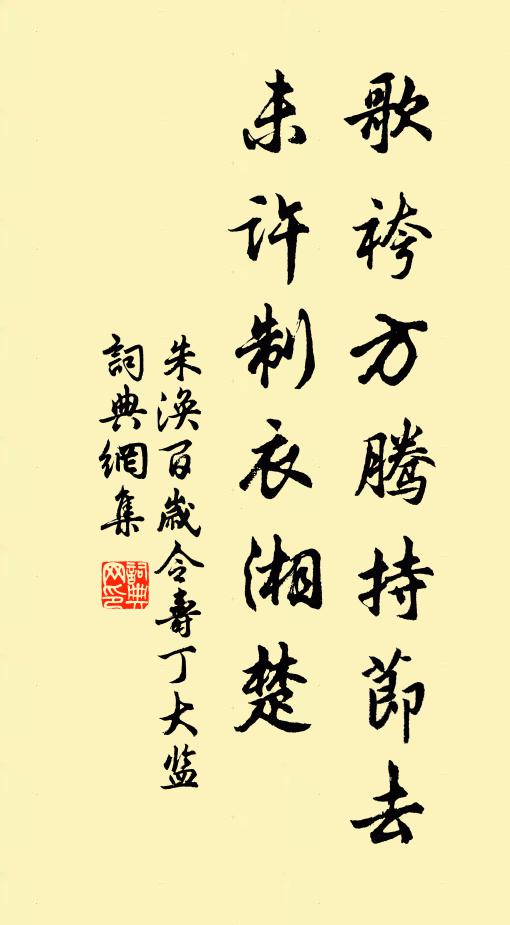 歌袴方腾持節去
未许制衣湘楚
朱涣百歲令壽丁大监
詞典網集
詞典网印